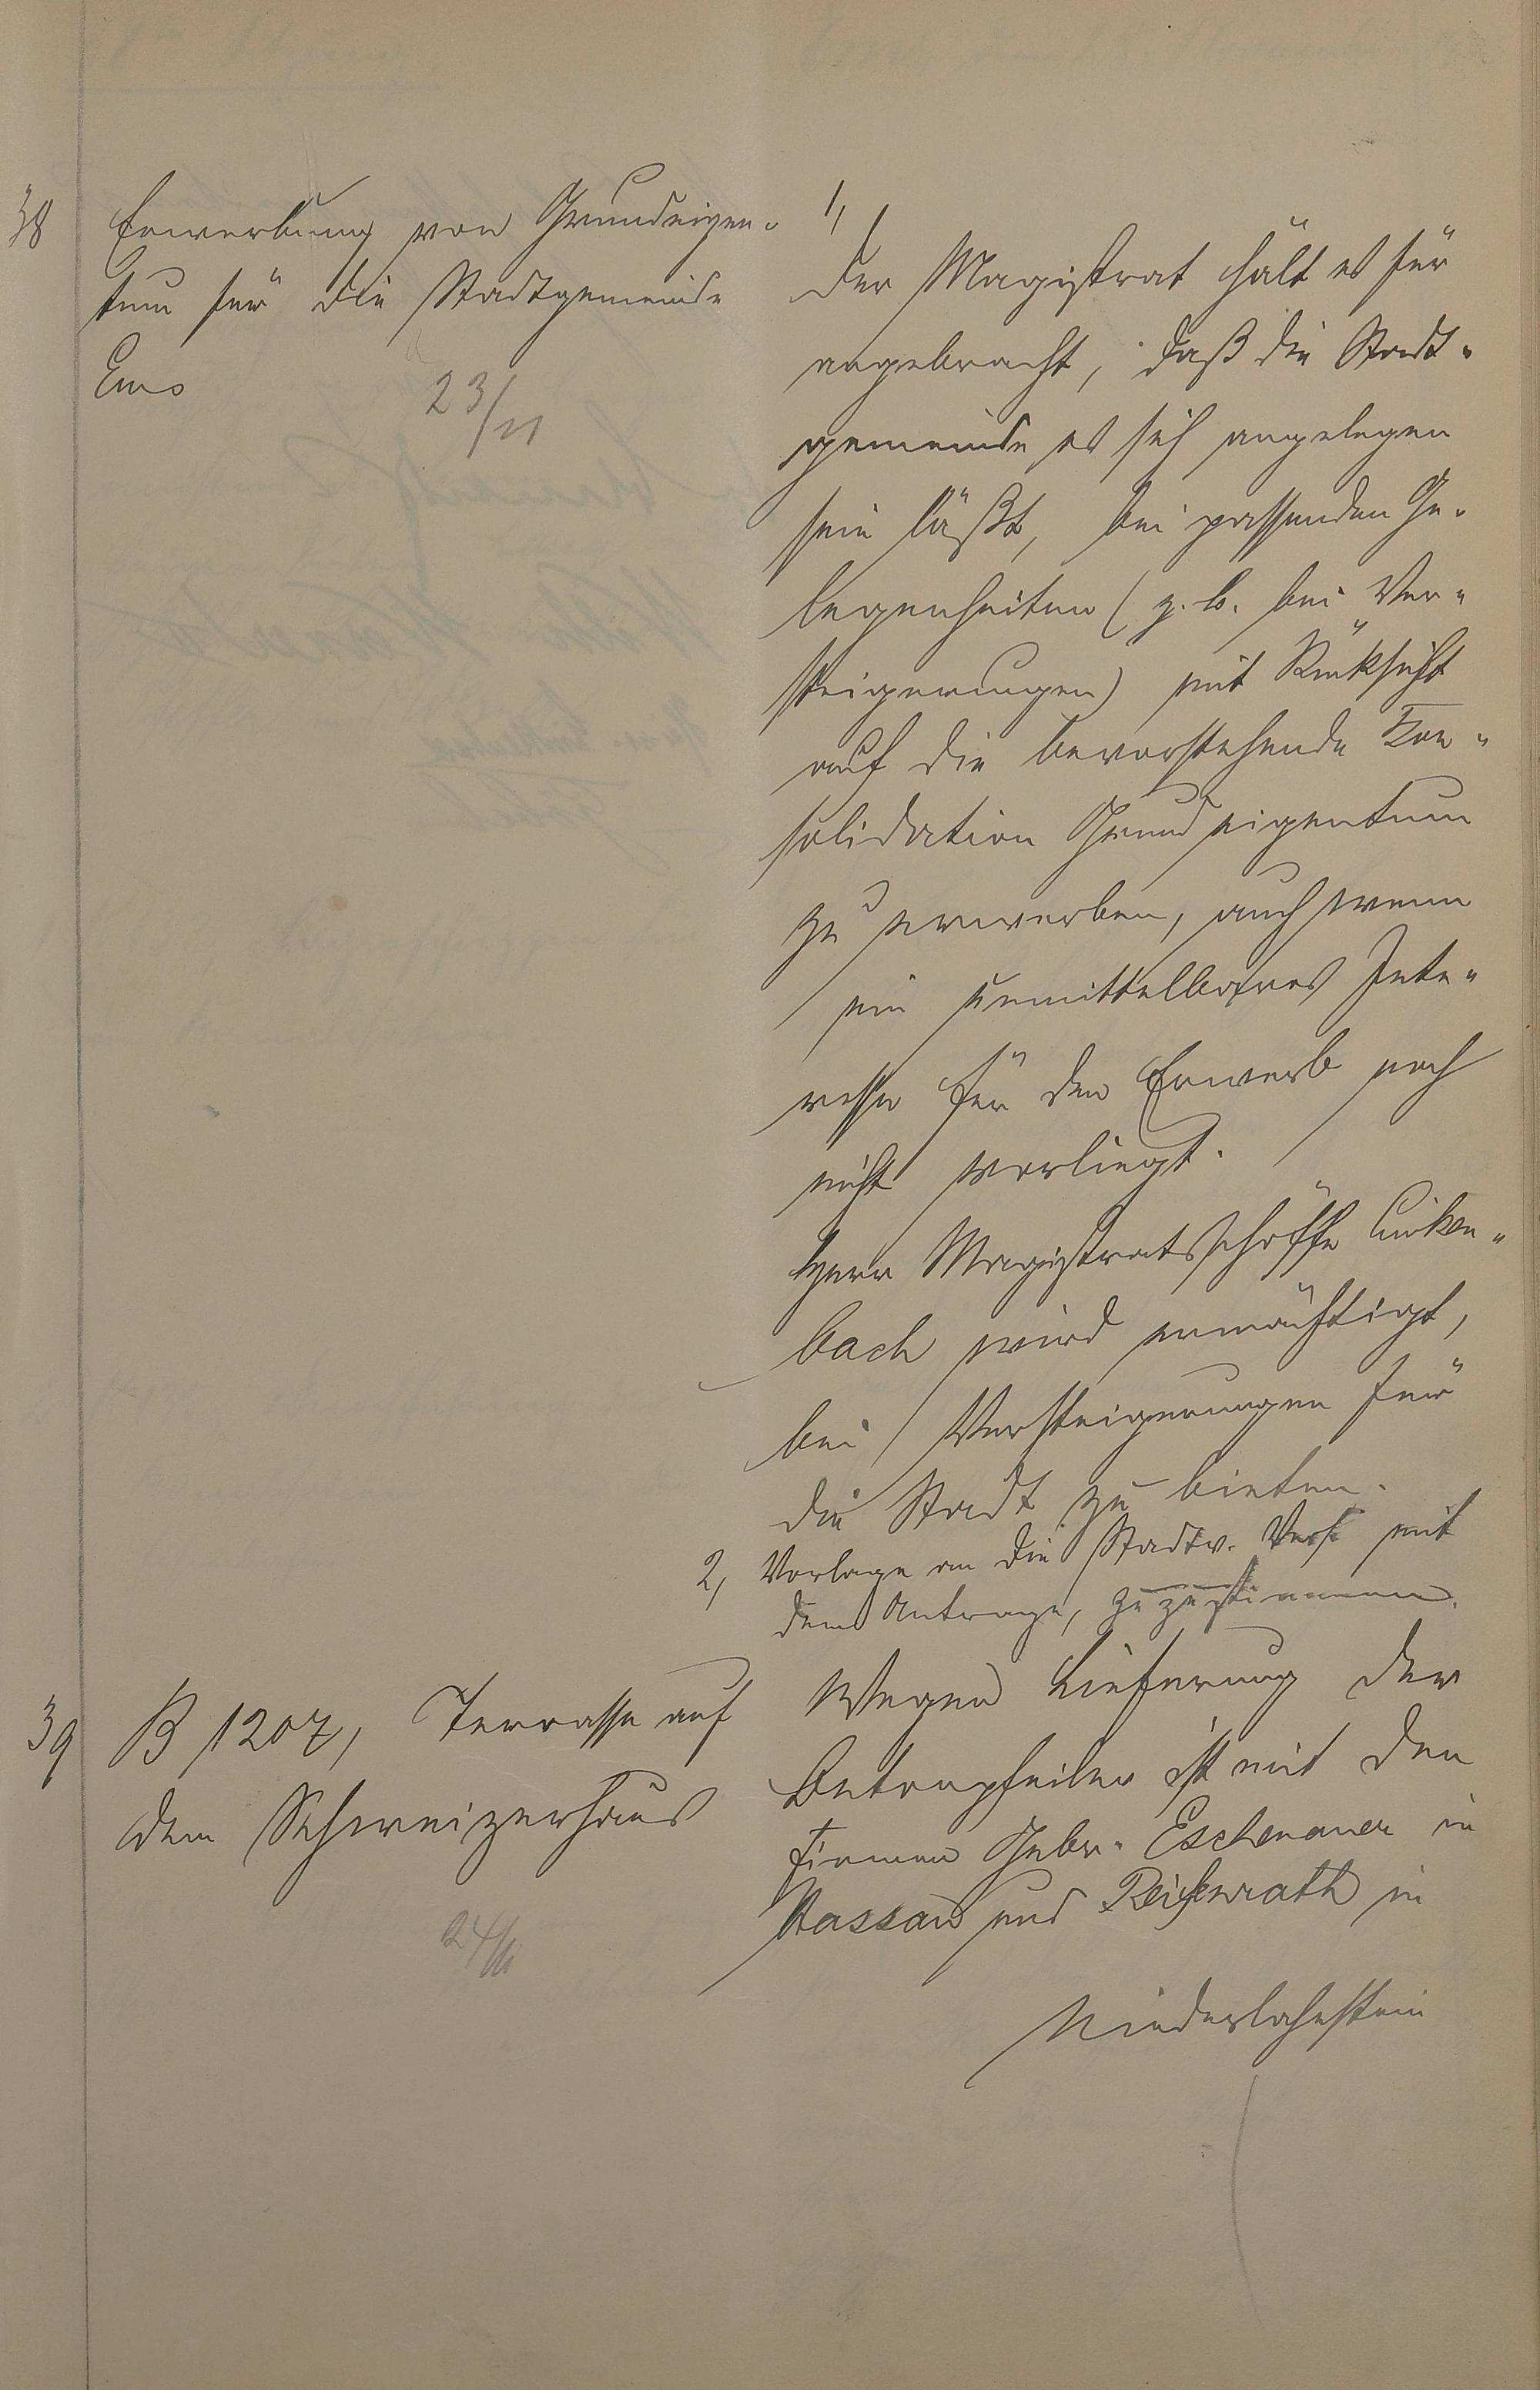 38
Erwerbung von Grundeigen-
tum für die Stadtgemeinde
Ems
23/11
1,
Der Magistrat hält es für
angebracht, daß die Stadt-
gemeinde es sich angelegen
sein läßt, bei passenden Ge-
legenheiten (z. B. bei Ver-
steigerungen) mit Rücksicht
auf die bevorstehende Kon-
solidation Grundeigentum
zu erwerben, auch wenn
ein unmittelbares Inte-
resse für den Erwerb noch
nicht vorliegt.
Herr Magistratsschöffe Linken-
bach wird ermächtigt,
bei Versteigerungen für
die Stadt zu bieten.
2, Vorlage an die Stadtv. Vers. mit
dem Antrage, zuzustimmen.
39
B 1207, Terrasse auf
dem Schweizerhaus
24/11
Wegen Lieferung der
Betonpfeiler ist mit den
Firmen Gebr. Eschenauer in
Nassau und Reichwrath in
Niederlahnstein